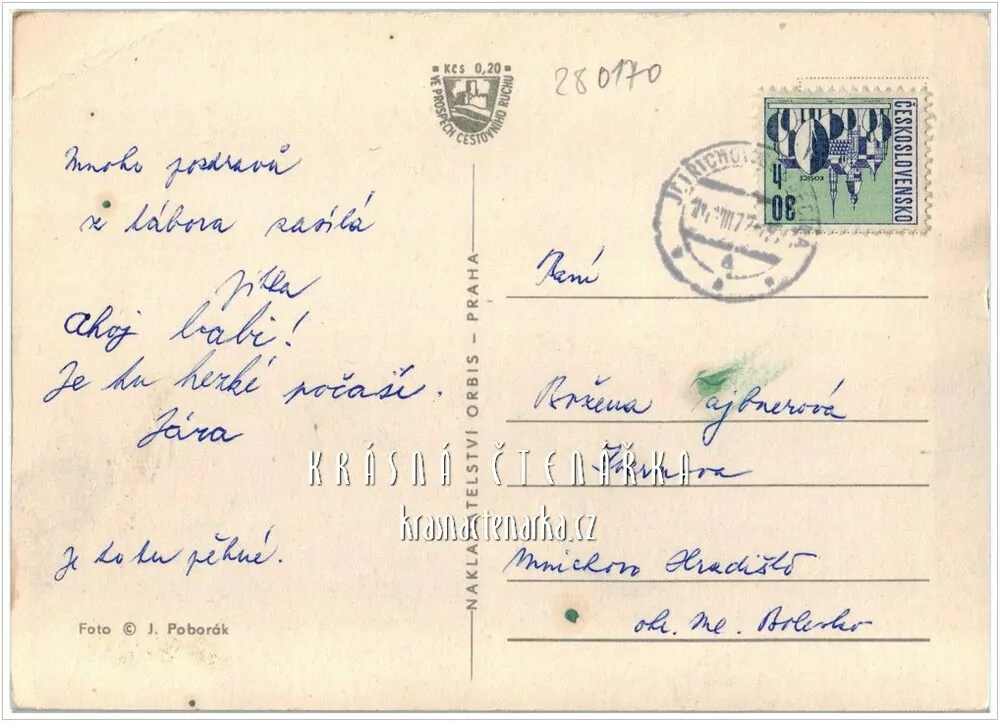 Kčs 0,20
VE PROSPĚCH CESTOVNÍHO RUCHU
280170
ČESKOSLOVENSKO
KOŠICE
30 h
Mnoho pozdravů
z tábora zasílá
Jitka
Ahoj babi!
Je tu hezké počasí.
Jára
Je to tu pěkné.
Foto © J. Poborák
NAKLADATELSTVÍ ORBIS – PRAHA
Paní
Božena Tajbnerová
Mnichovo Hradiště
ok. Ml. Boleslav
KRÁSNÁ ČTENÁŘKA
krasnactenarka.cz